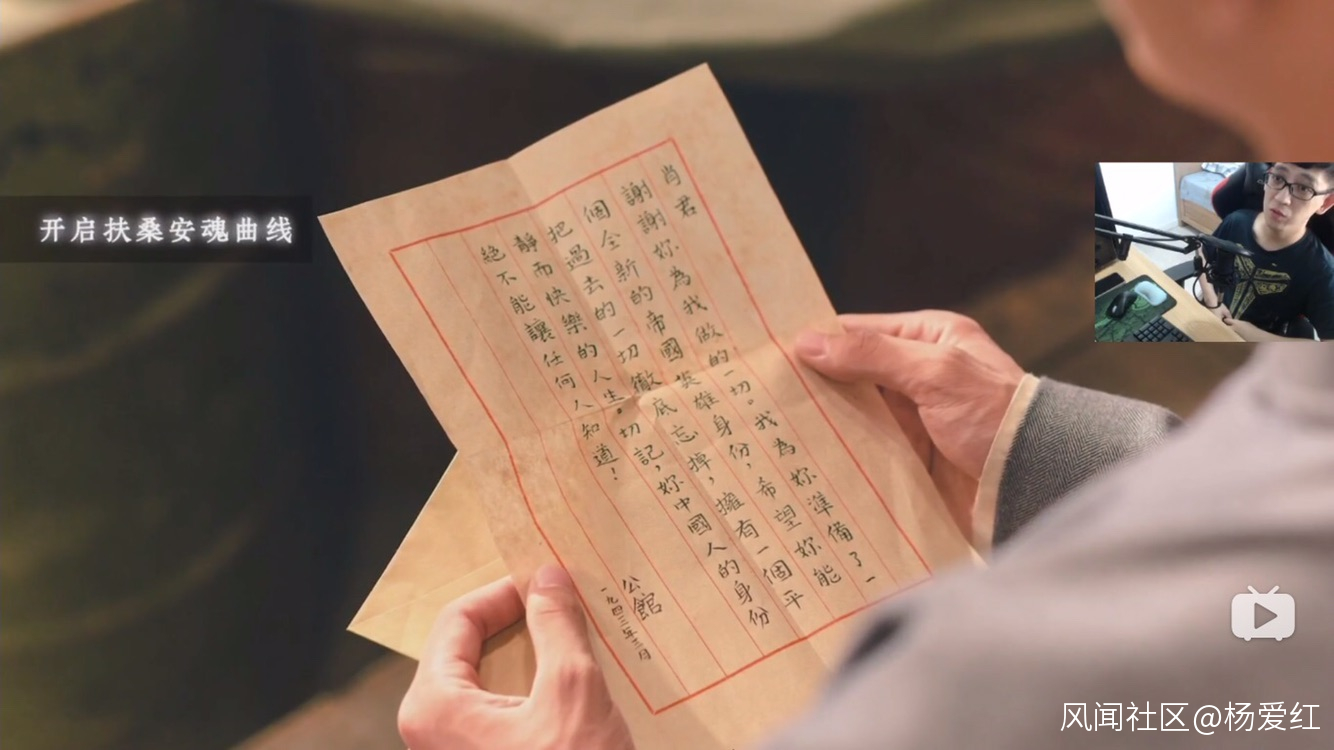 开启扶桑安魂曲线
肖君
謝謝妳為我做的一切。我為妳準備了一
個全新的帝國英雄身份，希望妳能
把過去的一切徹底忘掉，擁有一個平
靜而快樂的人生。切記，妳中國人的身份
絕不能讓任何人知道！
公館
一九四三年三月
风闻社区@杨爱红